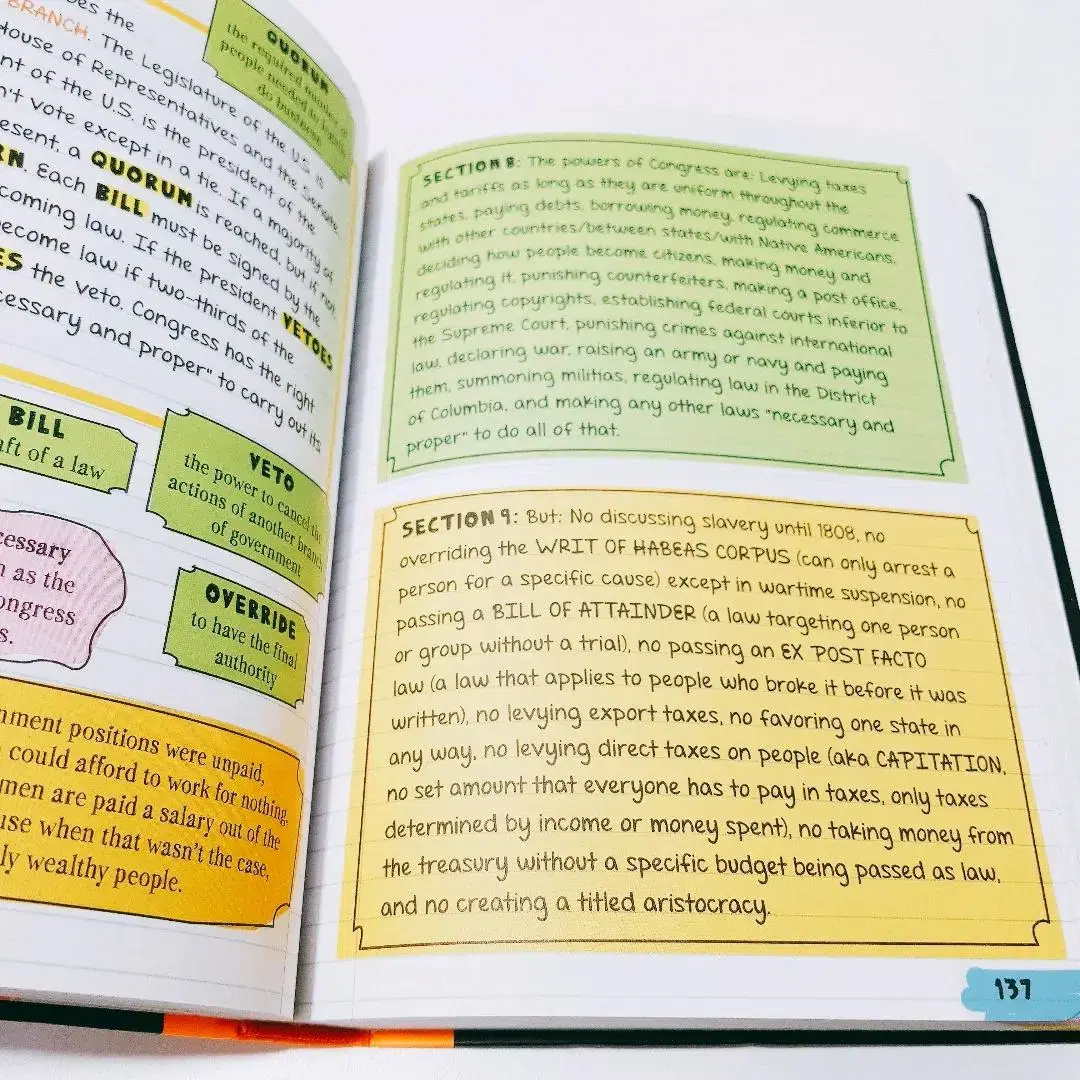 es the
BRANCH. The Legislature of the U.S. is
House of Representatives and the Senate.
nt of the U.S. is the president of the
n't vote except in a tie. If a majority of
esent, a QUORUM is reached, but if not,
RN. Each BILL must be signed by the
coming law. If the president VETOES
ecome law if two-thirds of the
ES the veto. Congress has the right
cessary and proper" to carry out its
QUORUM
the required number of
people needed to
do business
BILL
aft of a law
VETO
the power to cancel the
actions of another branch
of government
cessary
n as the
ongress
s.
OVERRIDE
to have the final
authority
nment positions were unpaid,
could afford to work for nothing.
men are paid a salary out of the
use when that wasn't the case,
ly wealthy people.
SECTION 8: The powers of Congress are: Levying taxes
and tariffs as long as they are uniform throughout the
states, paying debts, borrowing money, regulating commerce
with other countries/between states/with Native Americans,
deciding how people become citizens, making money and
regulating it, punishing counterfeiters, making a post office,
regulating copyrights, establishing federal courts inferior to
the Supreme Court, punishing crimes against international
law, declaring war, raising an army or navy and paying
them, summoning militias, regulating law in the District
of Columbia, and making any other laws "necessary and
proper" to do all of that.
SECTION 9: But: No discussing slavery until 1808, no
overriding the WRIT OF HABEAS CORPUS (can only arrest a
person for a specific cause) except in wartime suspension, no
passing a BILL OF ATTAINDER (a law targeting one person
or group without a trial), no passing an EX POST FACTO
law (a law that applies to people who broke it before it was
written), no levying export taxes, no favoring one state in
any way, no levying direct taxes on people (aka CAPITATION,
no set amount that everyone has to pay in taxes, only taxes
determined by income or money spent), no taking money from
the treasury without a specific budget being passed as law,
and no creating a titled aristocracy.
137